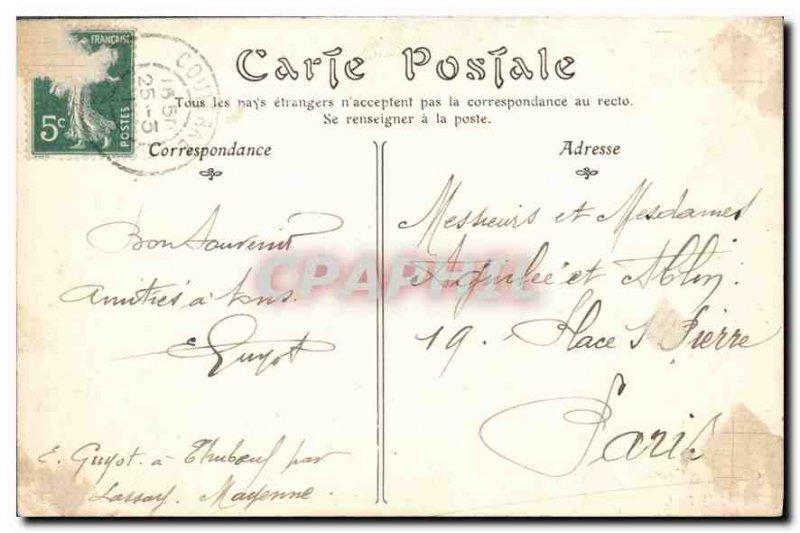 Carte Postale
Tous les pays étrangers n'acceptent pas la correspondance au recto.
Se renseigner à la poste.
FRANÇAISE
5c
POSTES
25-3
Correspondance
Adresse
Bon Souvenir
Amitiés à tous.
E Guyot
E. Guyot à Thuboeuf par
Lassay. Mayenne.
Messieurs et Mesdames
et
19. Place St Pierre
Paris
CPAPHIL